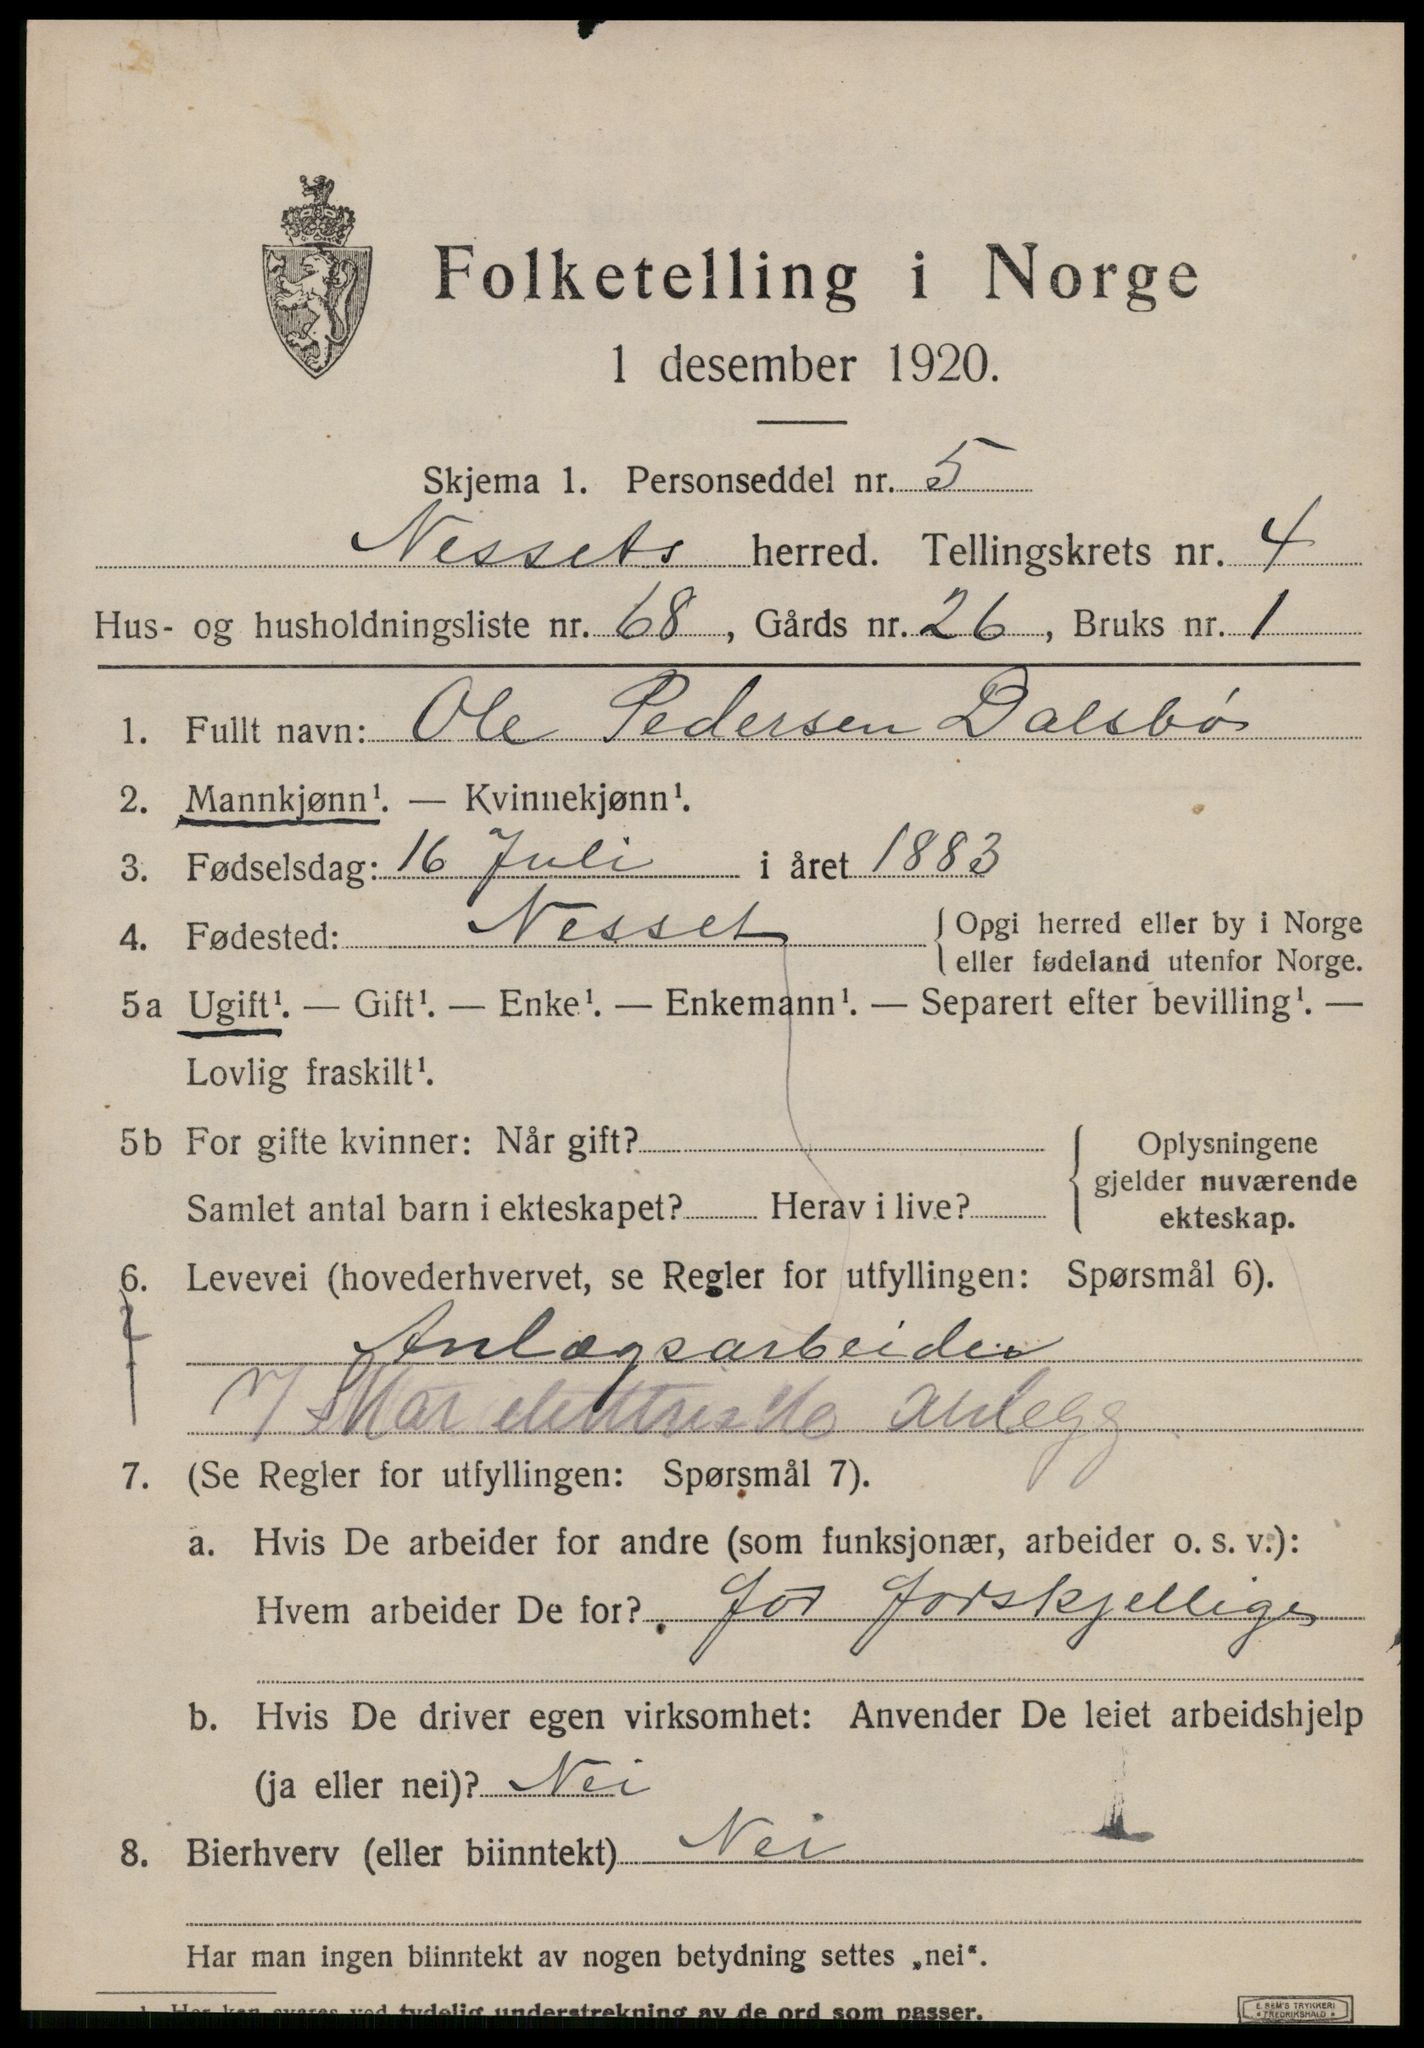 Folketelling i Norge
1 desember 1920.
Skjema 1. Personseddel nr. 5
Nessets herred. Tellingskrets nr. 4
Hus- og husholdningsliste nr. 68, Gårds nr. 26, Bruks nr. 1
1. Fullt navn: Ole Pedersen Dalsbø
2. Mannkjønn¹. — Kvinnekjønn¹.
3. Fødselsdag: 16 Juli i året 1883
4. Fødested: Nesset { Opgi herred eller by i Norge
eller fødeland utenfor Norge.
5a Ugift¹. — Gift¹. — Enke¹. — Enkemann¹. — Separert efter bevilling¹. —
Lovlig fraskilt¹.
5b For gifte kvinner: Når gift? { Oplysningene
gjelder nuværende
Samlet antal barn i ekteskapet? Herav i live? ekteskap.
6. Levevei (hovederhvervet, se Regler for utfyllingen: Spørsmål 6).
Anlægsarbeider
elektriske anlegg
7. (Se Regler for utfyllingen: Spørsmål 7).
a. Hvis De arbeider for andre (som funksjonær, arbeider o. s. v.):
Hvem arbeider De for? for forskjellige
b. Hvis De driver egen virksomhet: Anvender De leiet arbeidshjelp
(ja eller nei)? Nei
8. Bierhverv (eller biinntekt) Nei
Har man ingen biinntekt av nogen betydning settes „nei“.
1. Her kan svares ved tydelig understrekning av de ord som passer.
E. REM'S TRYKKERI
* FREDRIKSHALD *